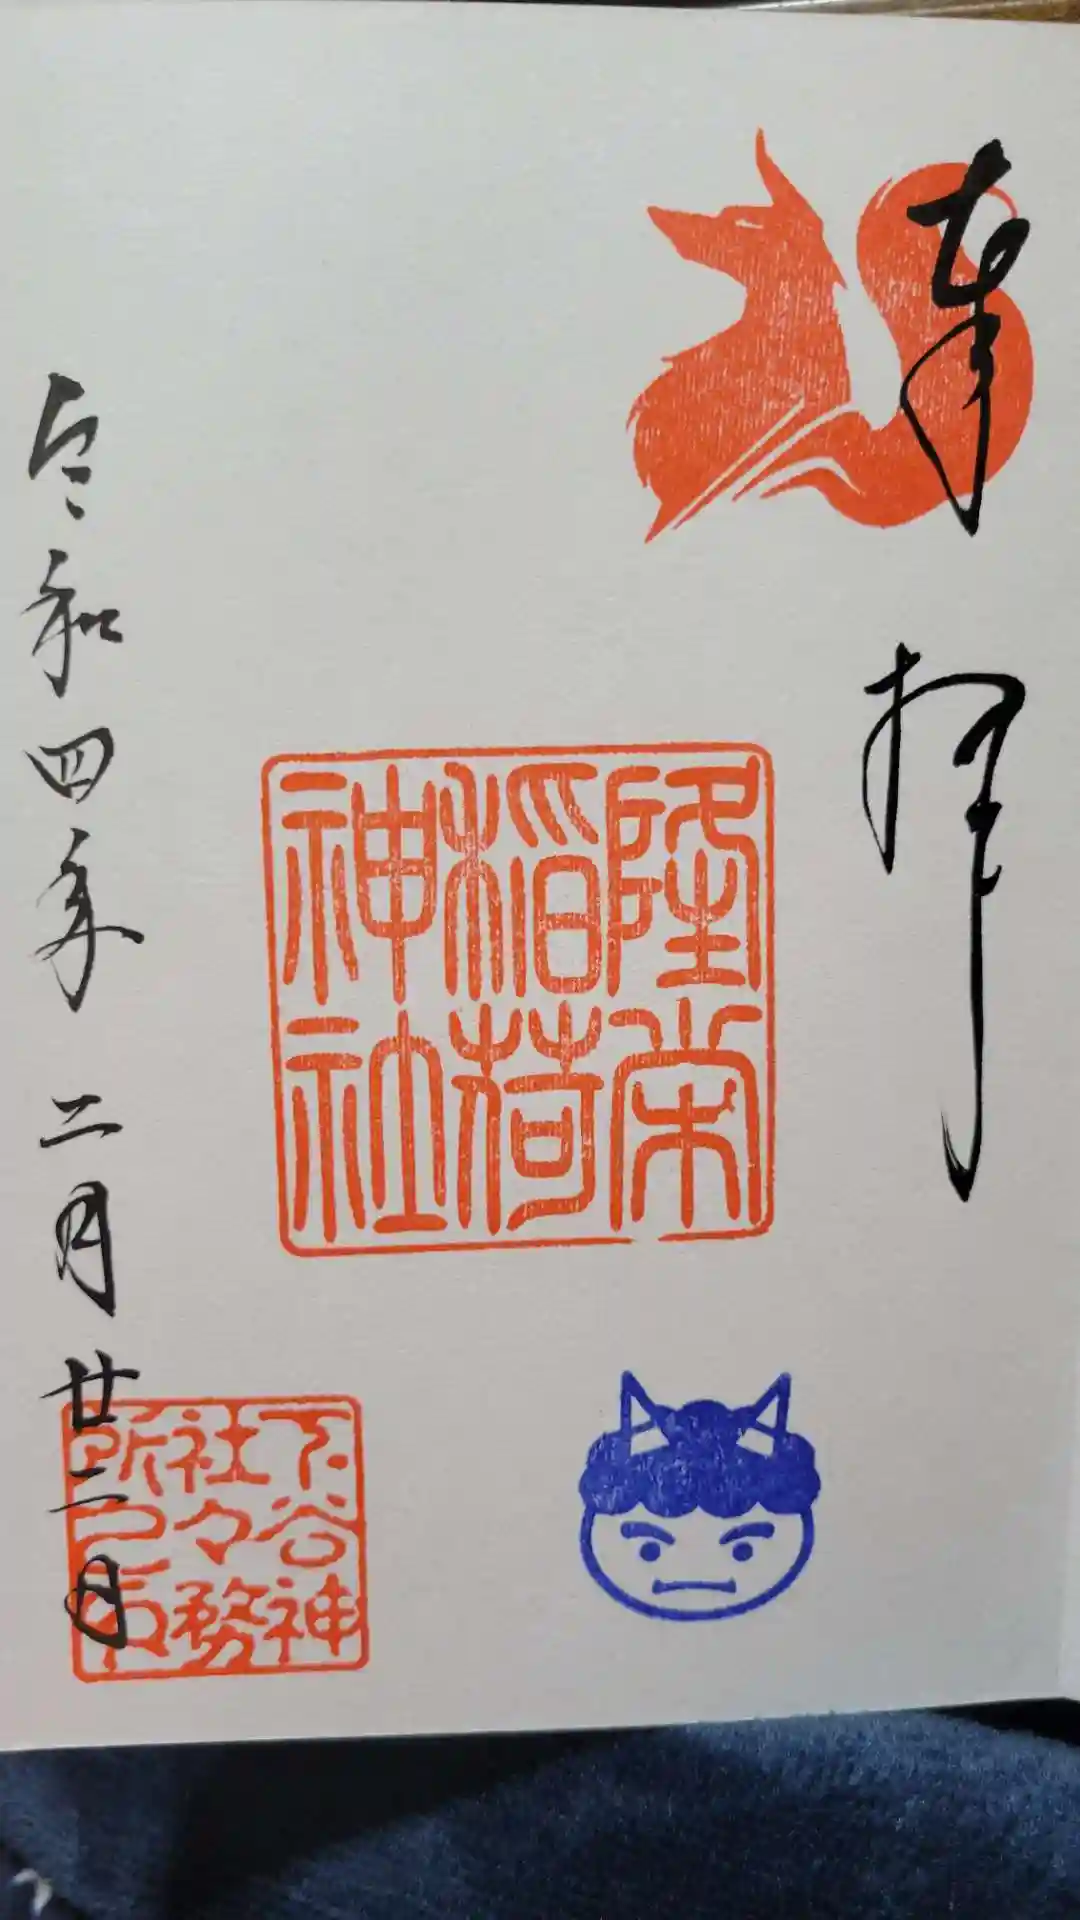 奉拝
隆栄
稲荷
神社
下谷神
社々務
所之印
令和四年 二月廿二日